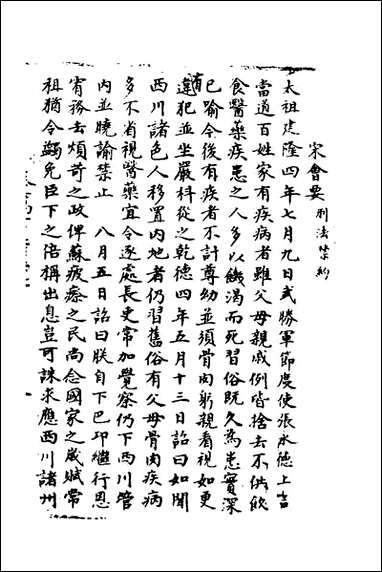 宋會要 刑法 禁約
太祖建隆四年七月九日武勝軍節度使張永德上言
當道百姓家有疾病者雖父母親戚例皆捨去不供飲
食醫藥疾患之人多以饑渴而死習俗既久為患實深
已喻今後有疾者不計尊幼並須骨肉躬親看視如更
有違犯並坐嚴科從之乾德四年五月十三日詔曰如聞
西川諸色人移置內地者仍習舊俗有父母骨肉疾病
多不省視醫藥宜令逐處長吏常加覺察仍下西川管
內並曉諭禁止 八月五日詔曰朕自下巴邛繼行恩
宥務去煩苛之政俾蘇疲瘵之民尚念國家之歲賦常
祖猶令蠲免臣下之倍稱出息豈可誅求應西川諸州